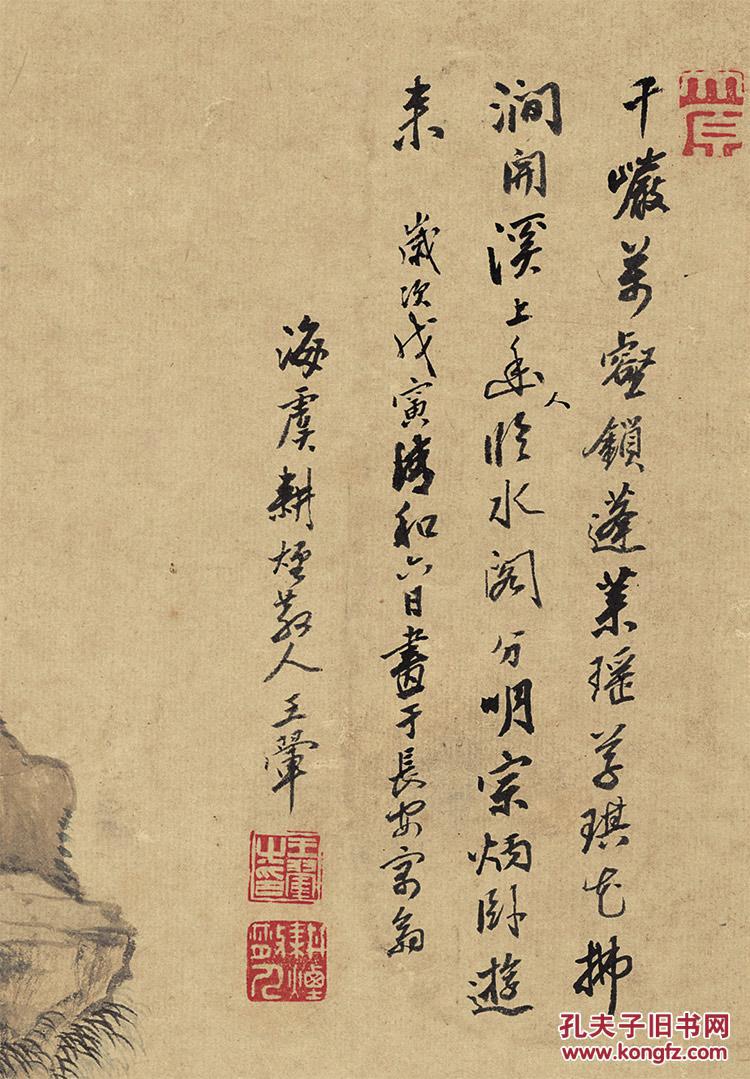 千巖萬壑鎖蓬萊瑤草琪花拂
澗開溪上幽人臨水閣分明宗炳臥遊
來 歲次戊寅清和六日畫于長安寓
海虞耕煙散人王翬
王翬之印
孔夫子旧书网
www.kongfz.com